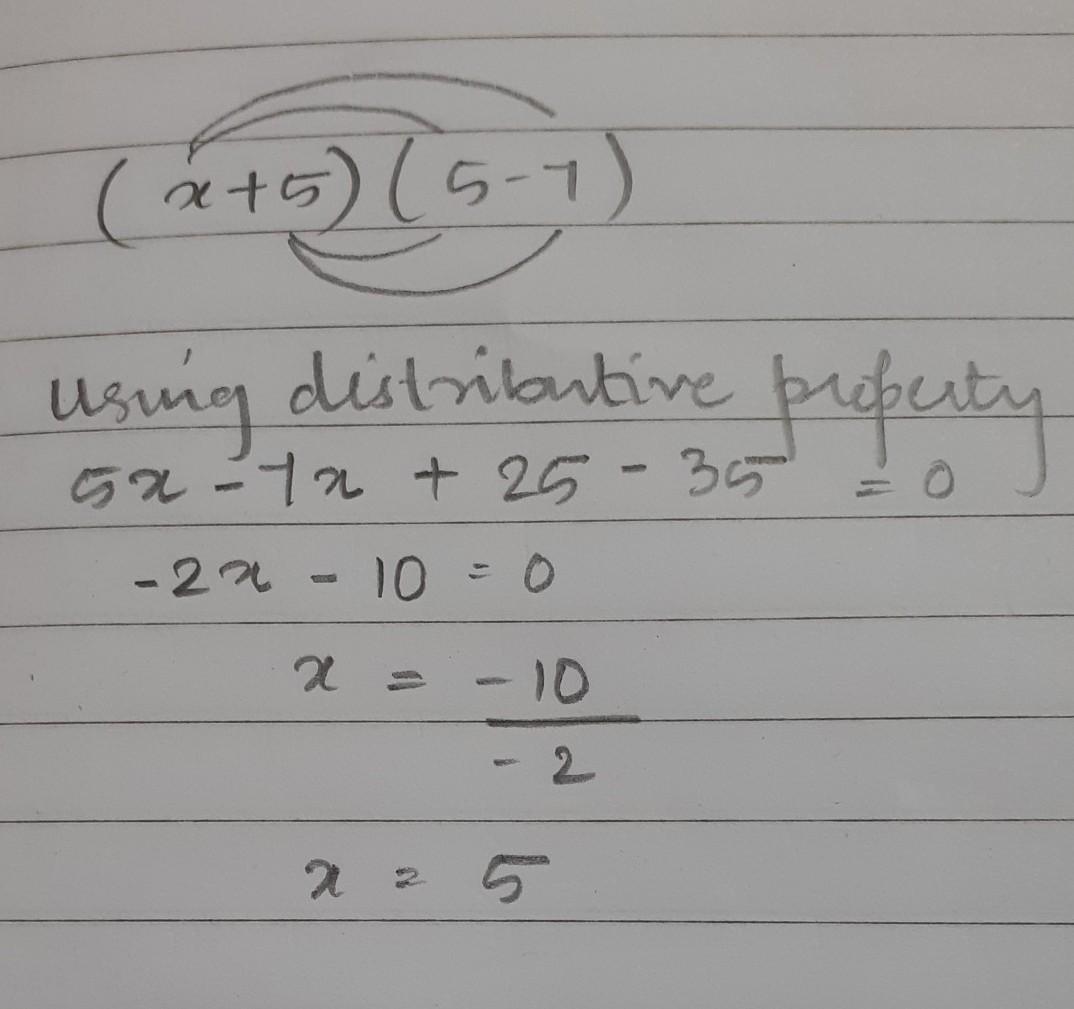 (x+5)(5-7)
Using distributive property
5x - 7x + 25 - 35 = 0
-2x - 10 = 0
x = -10
-2
x = 5